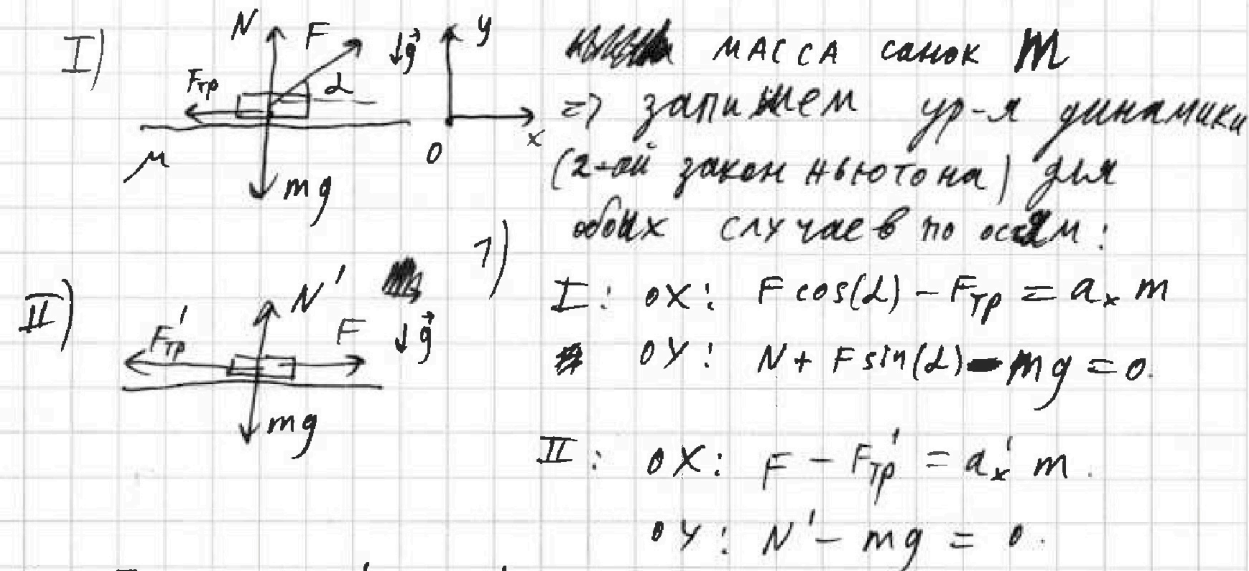 I)
N F ↓g⃗ y
Fтр α
μ mg 0 x
масса санок m
=> запишем ур-я динамики
(2-ой закон ньютона) для
обоих случаев по осям:
1)
I: OX: F cos(α) - Fтр = aₓ m
OY: N + F sin(α) - mg = 0.
II)
N' F'тр F ↓g⃗
mg
II: OX: F - F'тр = a'ₓ m.
OY: N' - mg = 0.